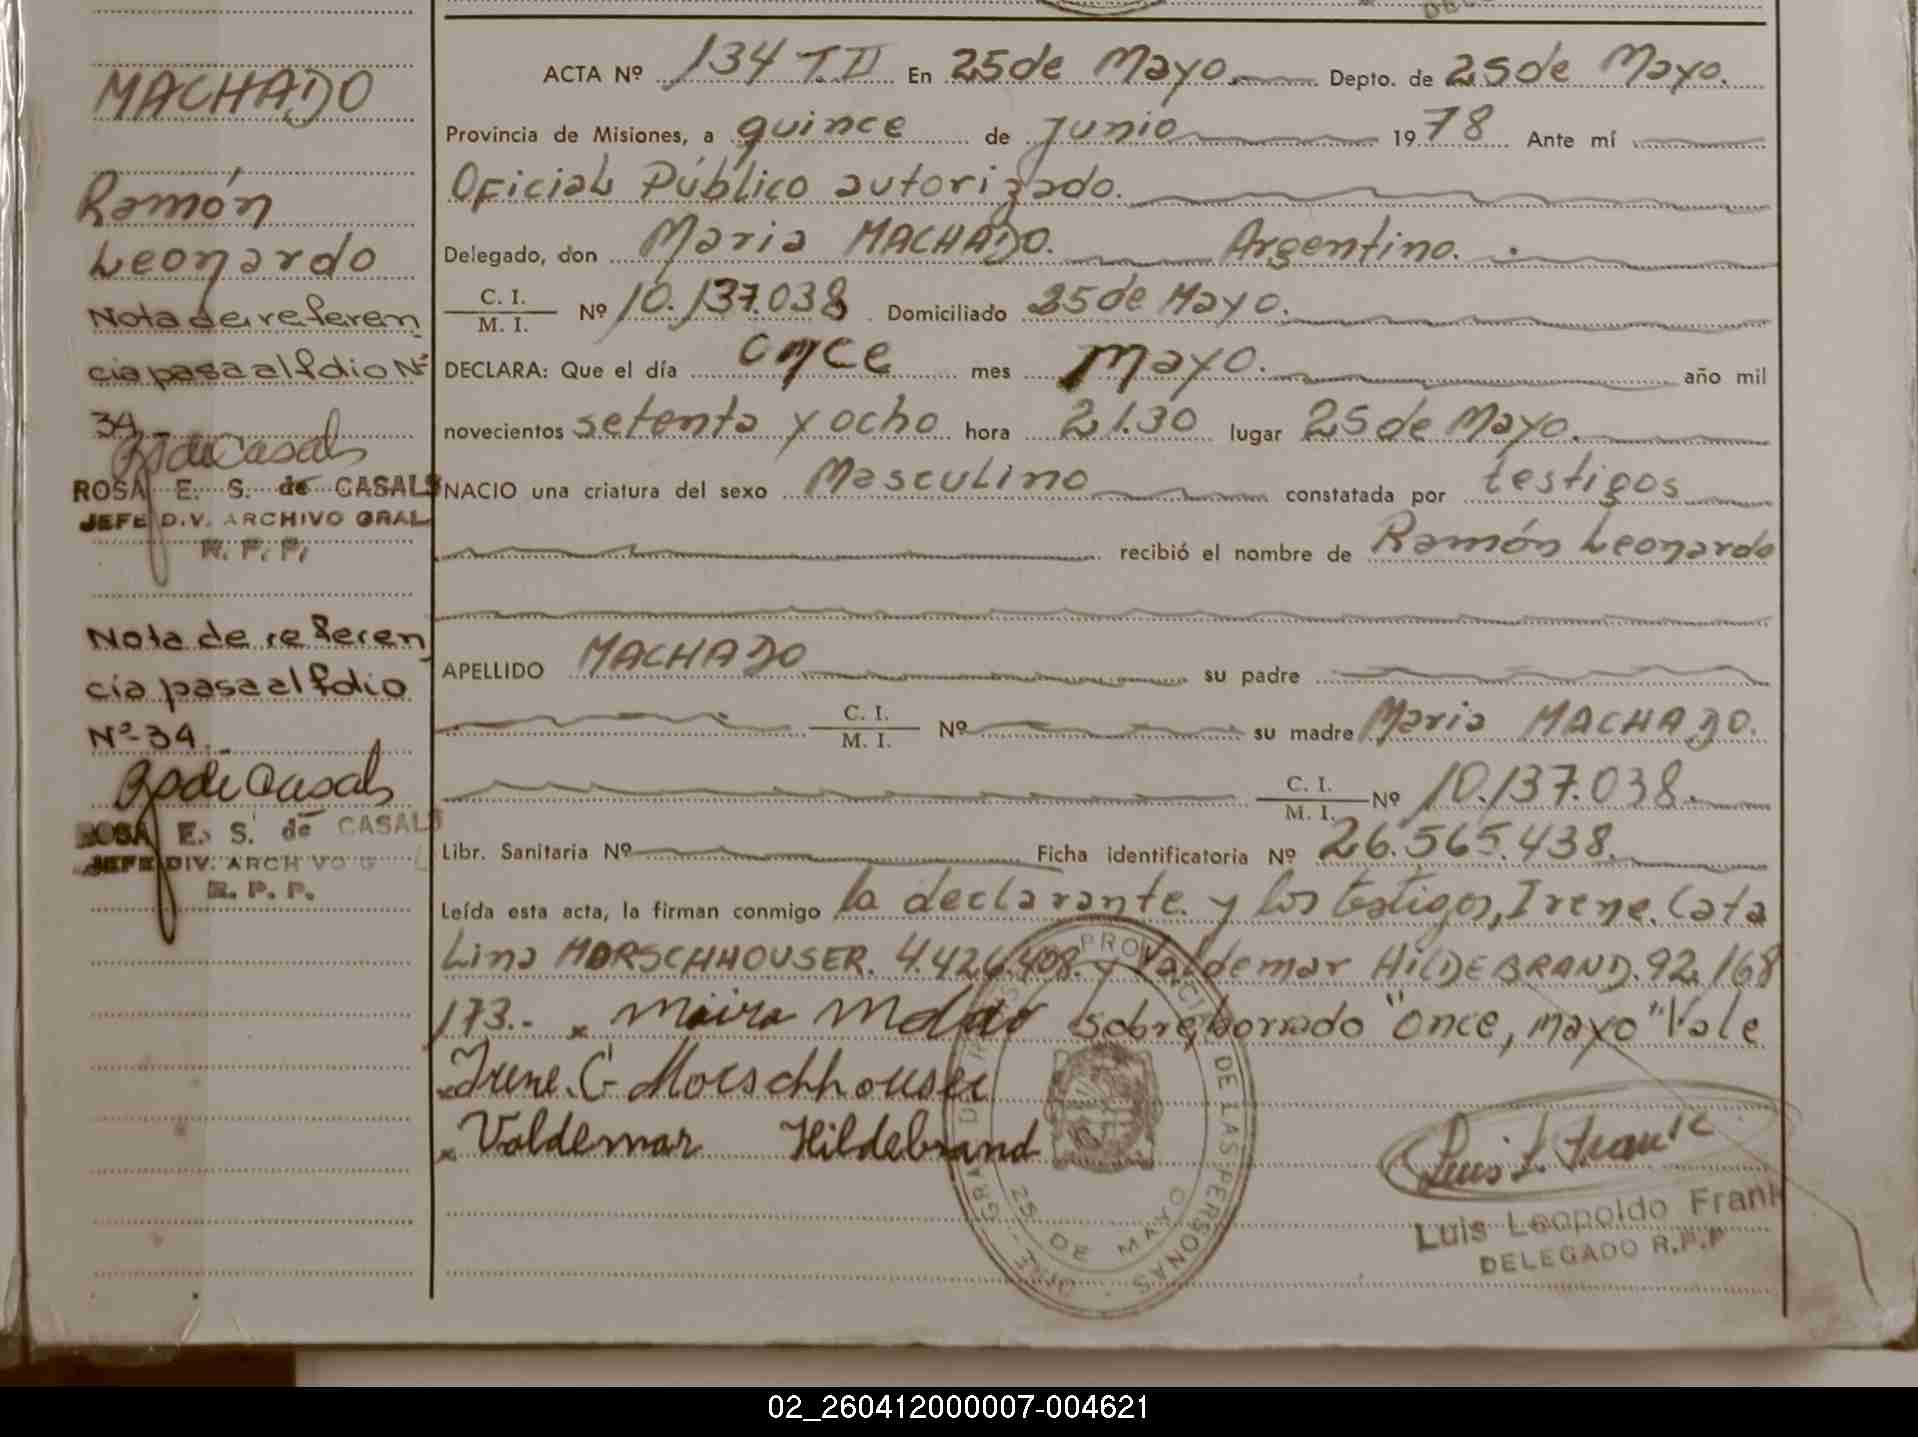 MACHADO
Ramón
Leonardo
Nota de referen
cia pasa al folio Nº
34
RSdeCasals
ROSA E. S. de CASALS
JEFE DIV. ARCHIVO GRAL
R. P. P.
Nota de referen
cia pasa al folio
Nº 34.
RSdeCasals
ROSA E. S. de CASALS
JEFE DIV. ARCHIVO G L
R. P. P.
ACTA Nº 134 T.II En 25 de Mayo. Depto. de 25 de Mayo.
Provincia de Misiones, a quince de junio 1978 Ante mí
Oficial Público autorizado.
Delegado, don Maria MACHADO. Argentino.
C. I.
M. I. Nº 10.137.038 Domiciliado 25 de Mayo.
DECLARA: Que el día once mes mayo. año mil
novecientos setenta y ocho hora 21.30 lugar 25 de Mayo.
NACIO una criatura del sexo Masculino constatada por testigos
recibió el nombre de Ramón Leonardo
APELLIDO MACHADO su padre
C. I.
M. I. Nº su madre Maria MACHADO.
C. I.
M. I. Nº 10.137.038.
Libr. Sanitaria Nº Ficha identificatoria Nº 26.565.438.
Leída esta acta, la firman conmigo la declarante. y los testigos, Irene. Cata
Lina MORSCHHOUSER. 4.426.408. y Valdemar HILDEBRAND. 92.168
173.- x sobre, borrado "Once, mayo" Vale
x Irene. C Morschhouser
x Valdemar Hildebrand
PROVINCIAL DE LAS PERSONAS
25 DE MAYO
Luis L Frank
Luis Leopoldo Frank
DELEGADO R.P.P
02_260412000007-004621